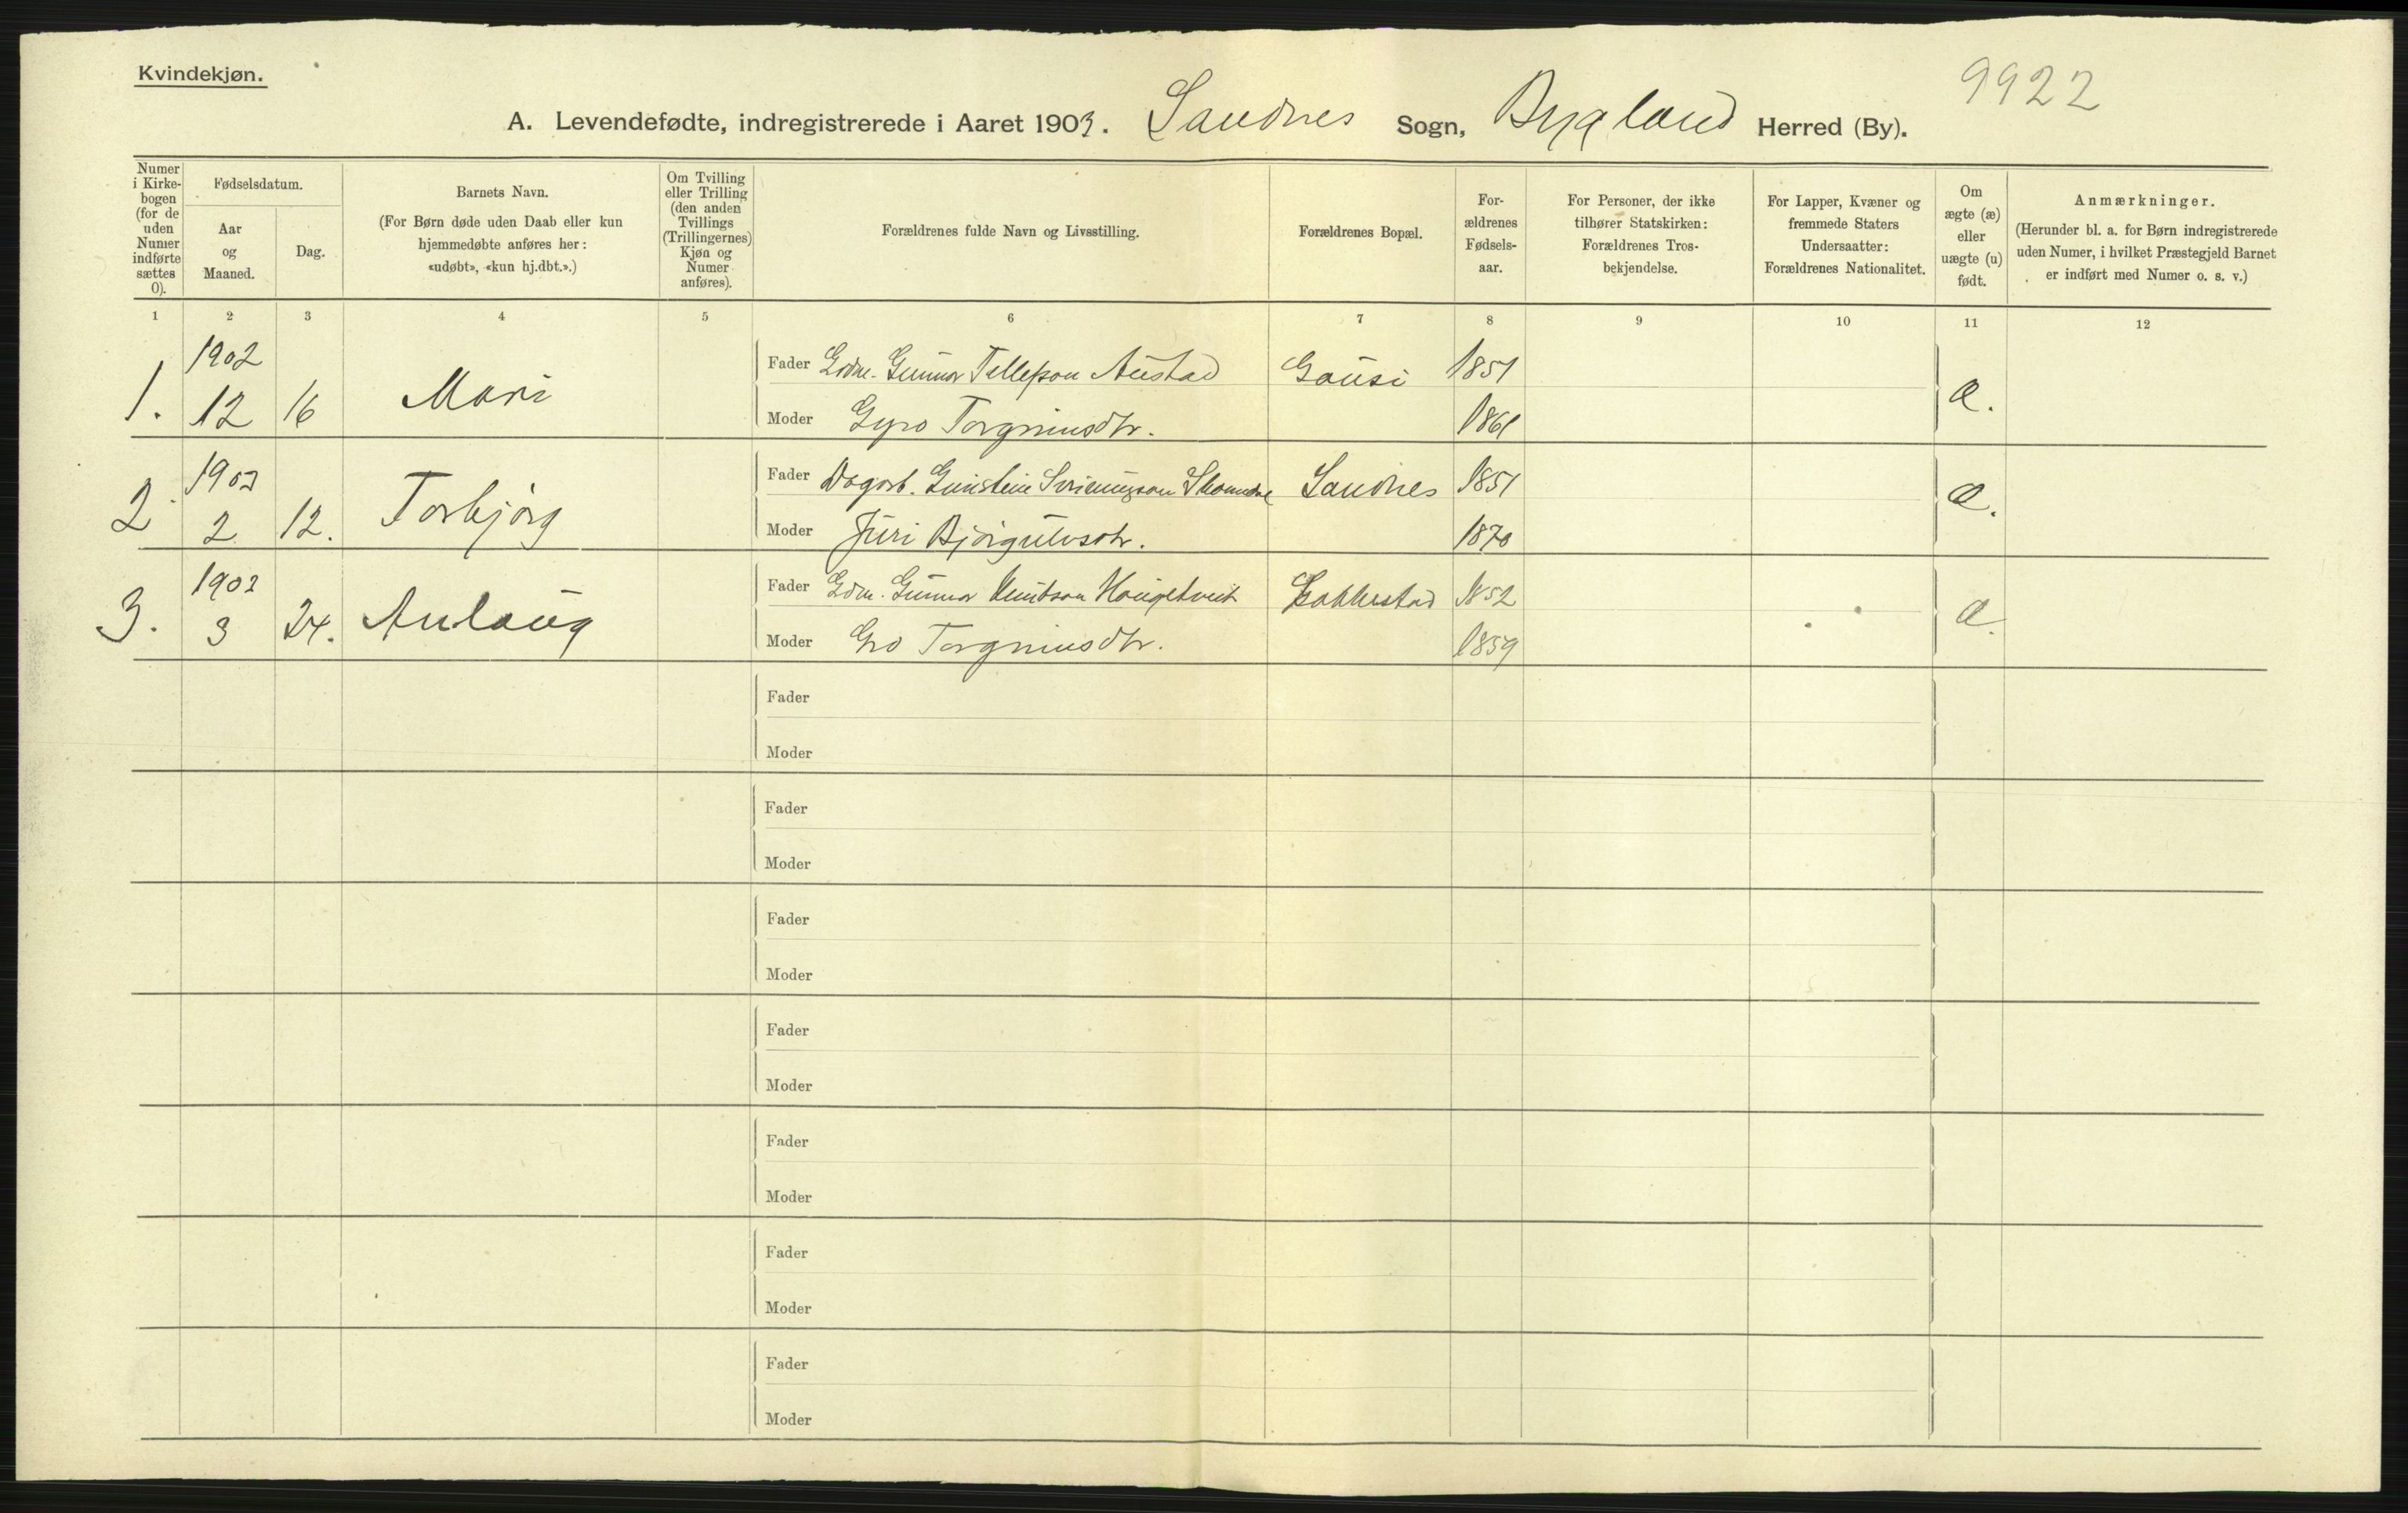 Kvindekjøn.
9922
A. Levendefødte, indregistrerede i Aaret 1903. Sandnes Sogn, Bygland Herred (By).
Numer i Kirkebogen (for de uden Numer indførte sættes 0).
Fødselsdatum.
Aar og Maaned.
Dag.
Barnets Navn.
(For Børn døde uden Daab eller kun hjemmedøbte anføres her: «udøbt», «kun hj.dbt.».)
Om Tvilling eller Trilling (den anden Tvillings (Trillingernes) Kjøn og Numer anføres).
Forældrenes fulde Navn og Livsstilling.
Forældrenes Bopæl.
Forældrenes Fødselsaar.
For Personer, der ikke tilhører Statskirken: Forældrenes Trosbekjendelse.
For Lapper, Kvæner og fremmede Staters Undersaatter: Forældrenes Nationalitet.
Om ægte (æ) eller uægte (u) født.
Anmærkninger.
(Herunder bl. a. for Børn indregistrerede uden Numer, i hvilket Præstegjeld Barnet er indført med Numer o. s. v.)
1 2 3 4 5 6 7 8 9 10 11 12
1. 1902 12 16 Mari Fader Gdm. Gunnar Tellefson Austad Gausi 1851 æ.
Moder Gyro Torgrimsdtr. 1861
2. 1903 2 12. Torbjörg Fader Dagarb. Gunstein Sandnes 1851 æ.
Moder Juri Björgulvsdtr. 1870
3. 1903 3 24. Anlaug Fader Gdm. Gunnar Knutson Haugetveit 1852 æ.
Moder Gro Torgrimsdtr. 1859
Fader
Moder
Fader
Moder
Fader
Moder
Fader
Moder
Fader
Moder
Fader
Moder
Fader
Moder